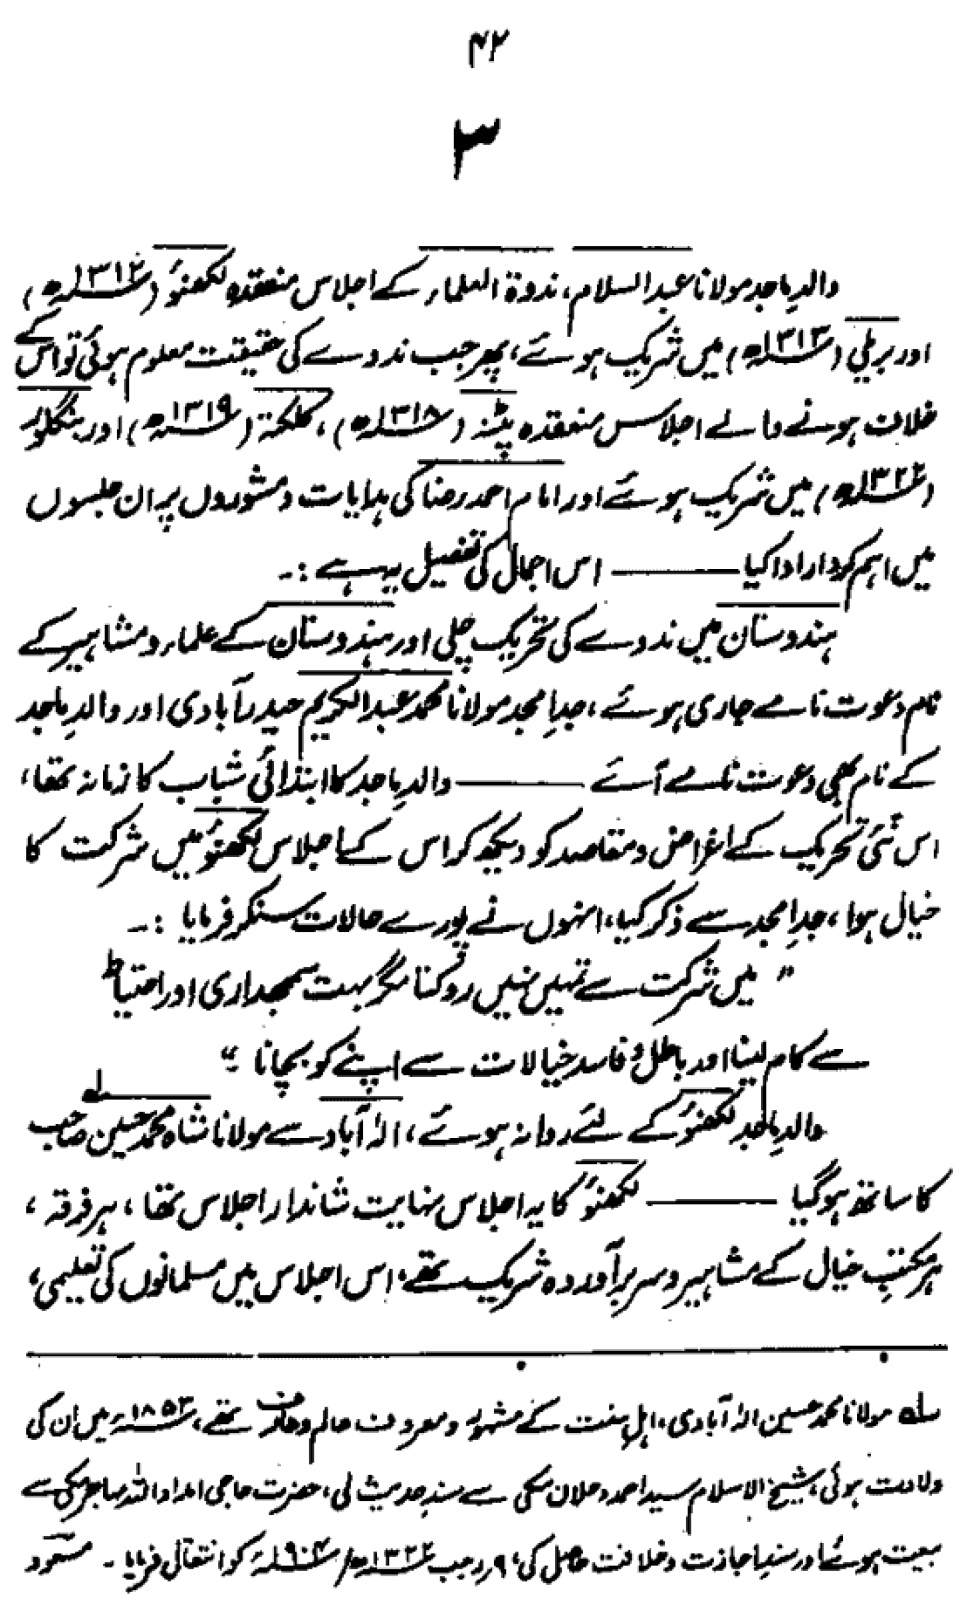 ۴۲
۳
والدِ ماجد مولانا عبدالسلام، ندوۃ العلماء کے اجلاس منعقدہ لکھنؤ (۱۳۱۲ھ)
اور بریلی (۱۳۱۳ھ) میں شریک ہوئے، پھر جب ندوے کی حقیقت معلوم ہوئی تو اس کے
خلاف ہونے والے اجلاس منعقدہ پٹنہ (۱۳۱۸ھ)، کلکتہ (۱۳۱۹ھ) اور بنگلور
(۱۳۲۲ھ) میں شریک ہوئے اور امام احمد رضا کی ہدایات و مشوروں پر ان جلسوں
میں اہم کردار ادا کیا ــــــــ اس اجمال کی تفصیل یہ ہے :۔
ہندوستان میں ندوے کی تحریک چلی اور ہندوستان کے علماء و مشاہیر کے
نام دعوت نامے جاری ہوئے، جدِ امجد مولانا محمد عبدالکریم حیدرآبادی اور والدِ ماجد
کے نام بھی دعوت نامے آئے ــــــــ والدِ ماجد کا ابتدائی شباب کا زمانہ تھا،
اس نئی تحریک کے اغراض و مقاصد کو دیکھ کر اس کے اجلاس لکھنؤ میں شرکت کا
خیال ہوا، جدِ امجد سے ذکر کیا، انہوں نے پورے حالات سنکر فرمایا :۔
" میں شرکت سے تمہیں نہیں روکتا مگر بہت سمجھداری اور احتیاط
سے کام لینا اور باطل و فاسد خیالات سے اپنے کو بچانا ۔"
والدِ ماجد لکھنؤ کے لئے روانہ ہوئے، الہ آباد سے مولانا شاہ محمد حسین صاحب ؎۱
کا ساتھ ہوگیا ــــــــ لکھنؤ کا یہ اجلاس نہایت شاندار اجلاس تھا، ہر فرقہ،
ہر مکتبِ خیال کے مشاہیر و سربرآوردہ شریک تھے، اس اجلاس میں مسلمانوں کی تعلیمی،
؎۱ مولانا محمد حسین الہ آبادی، اہل سنت کے مشہور و معروف عالم و عارف تھے، ۱۸۵۳ء میں ان کی
ولادت ہوئی، شیخ الاسلام سید احمد دحلان مکی سے سندِ حدیث لی، حضرت حاجی امداد اللہ مہاجر مکی سے
بیعت ہوئے اور سندِ اجازت و خلافت حاصل کی، ۹ رجب ۱۳۲۲ھ/ ۱۹۰۴ء کو انتقال فرمایا ۔ مسعود